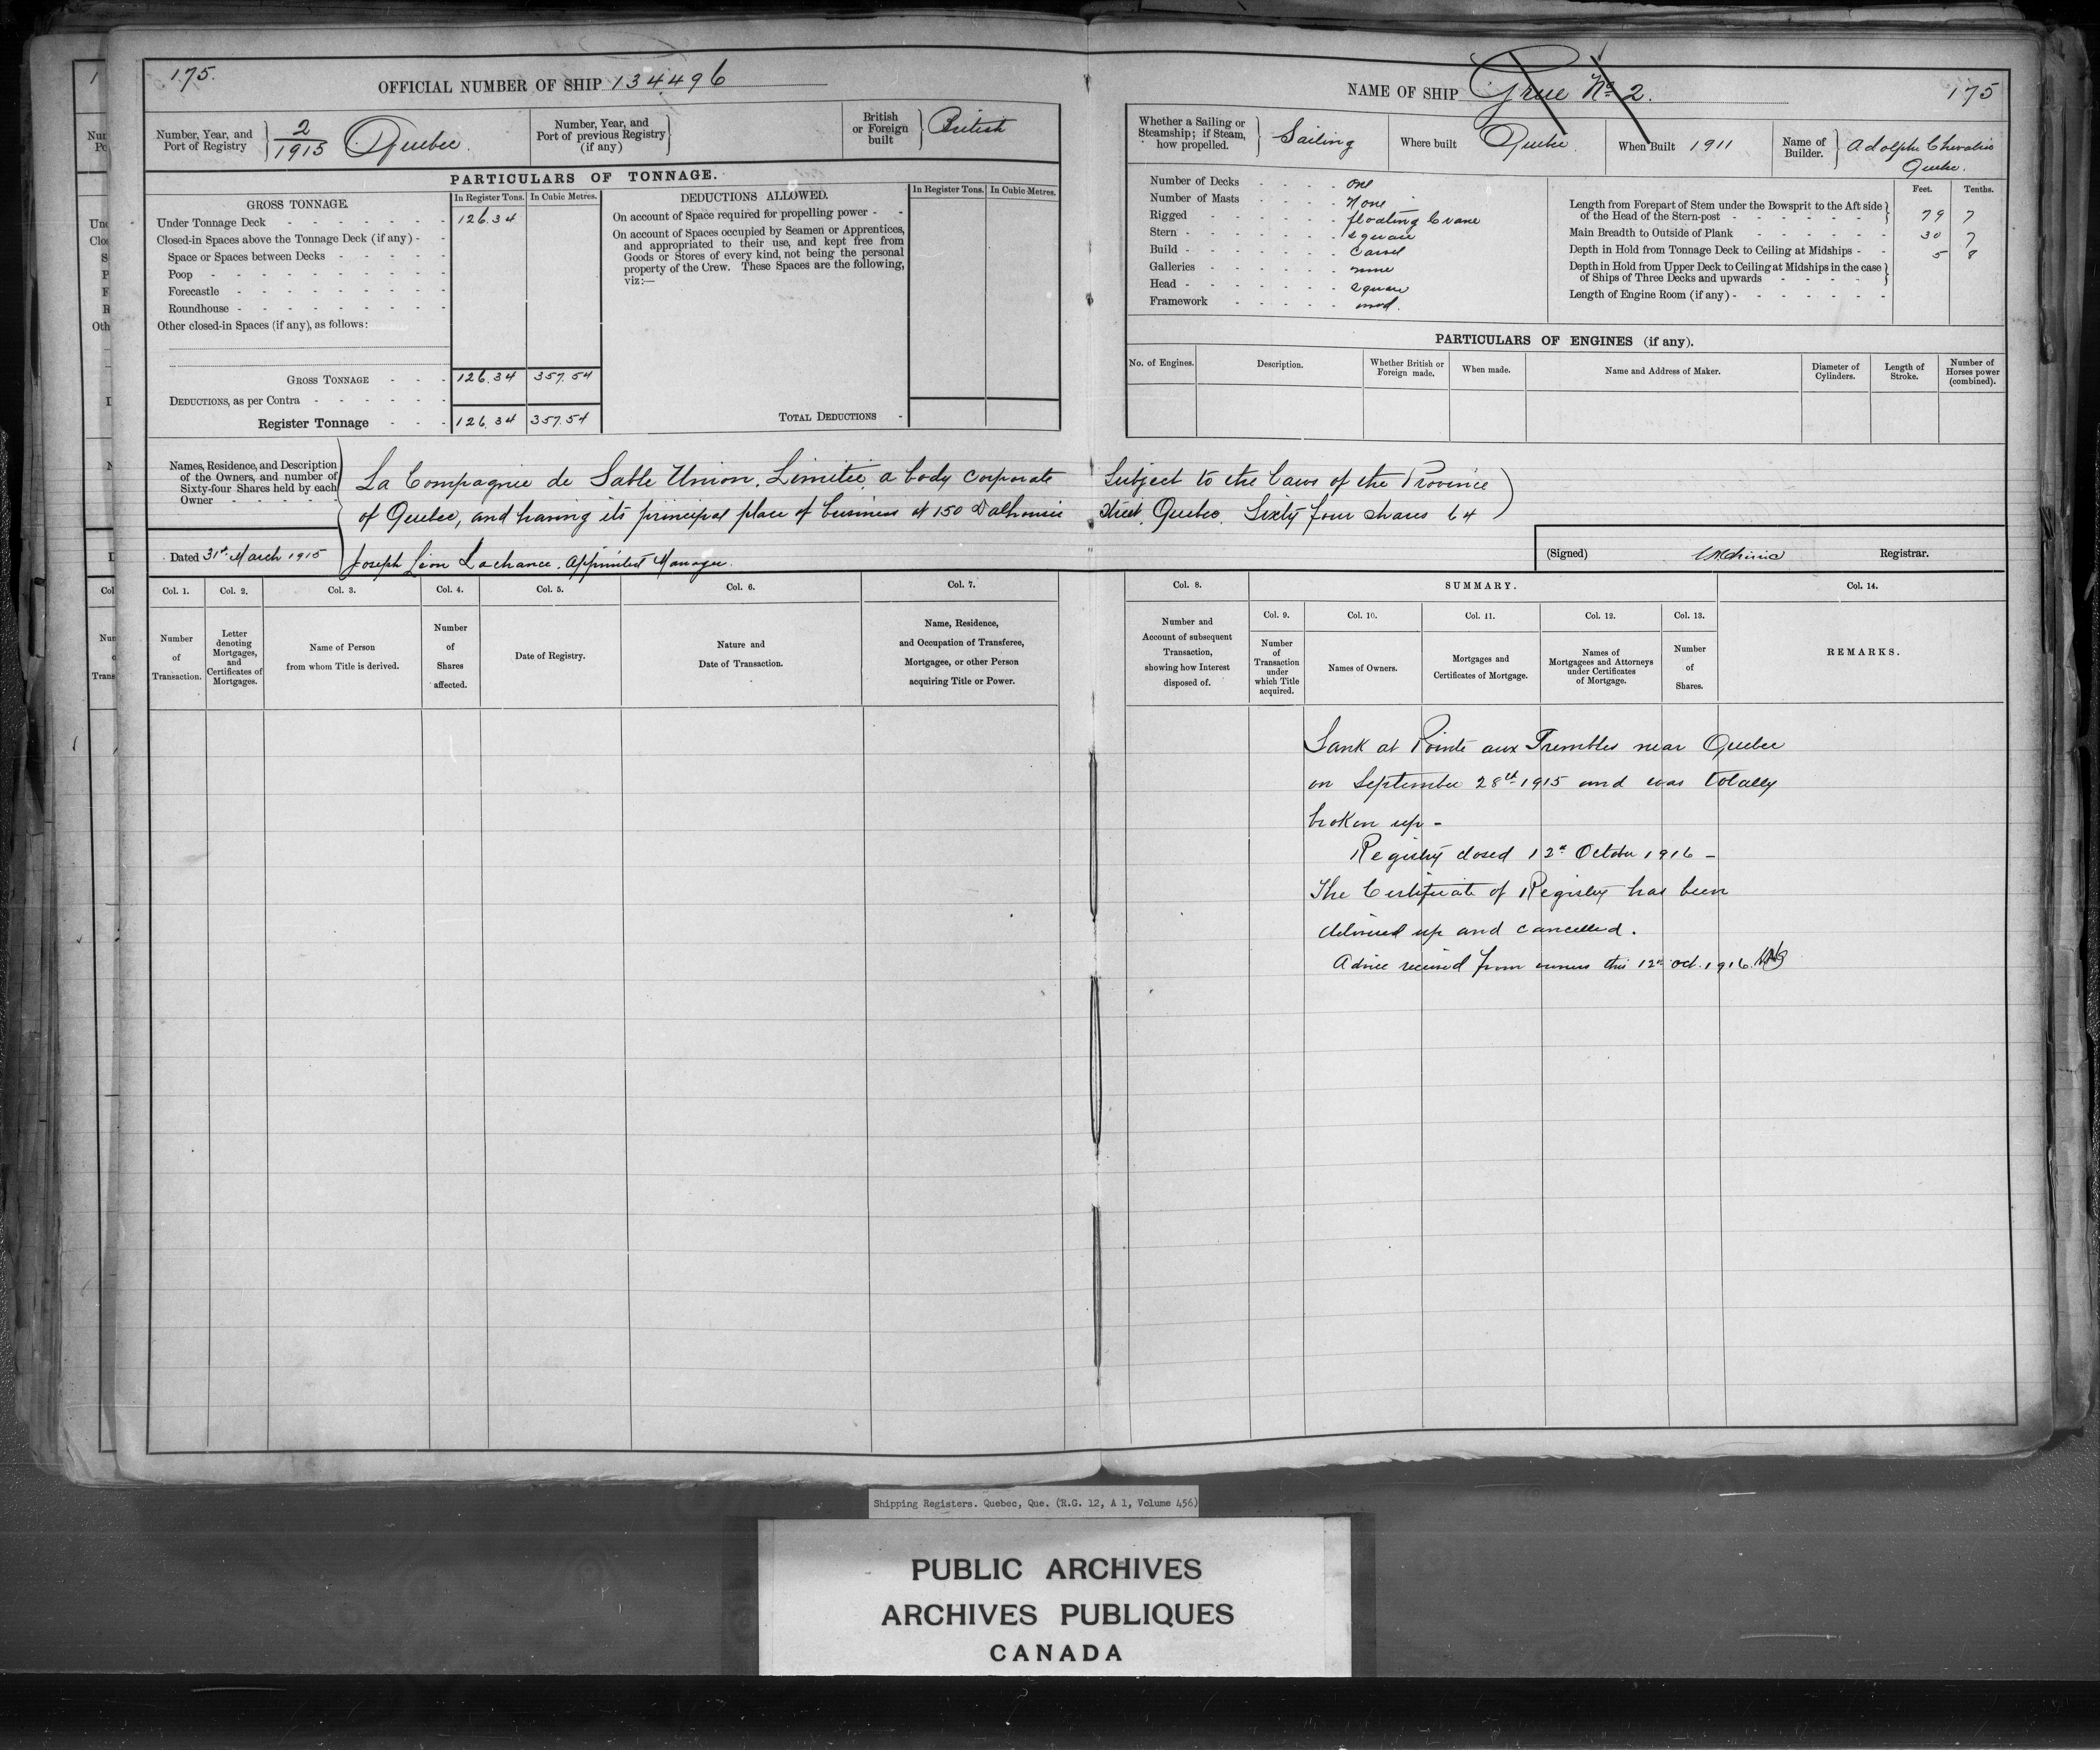 175.
OFFICIAL NUMBER OF SHIP 134496
Number, Year, and Port of Registry } 2/1915 Quebec.
Number, Year, and Port of previous Registry (if any) }
British or Foreign built } British
PARTICULARS OF TONNAGE.
GROSS TONNAGE.
In Register Tons. In Cubic Metres.
Under Tonnage Deck 126.34
Closed-in Spaces above the Tonnage Deck (if any)
Space or Spaces between Decks
Poop
Forecastle
Roundhouse
Other closed-in Spaces (if any), as follows:
GROSS TONNAGE 126.34 357.54
DEDUCTIONS, as per Contra
Register Tonnage 126.34 357.54
DEDUCTIONS ALLOWED.
In Register Tons. In Cubic Metres.
On account of Space required for propelling power
On account of Spaces occupied by Seamen or Apprentices,
and appropriated to their use, and kept free from
Goods or Stores of every kind, not being the personal
property of the Crew. These Spaces are the following,
viz:—
TOTAL DEDUCTIONS
NAME OF SHIP Grue No 2.
175
Whether a Sailing or Steamship; if Steam, how propelled. } Sailing
Where built Quebec.
When Built 1911
Name of Builder. } Adolphe Chevalier
Quebec.
Number of Decks one
Number of Masts None
Rigged floating Crane
Stern square
Build Carvel
Galleries none
Head square
Framework wood.
Feet. Tenths.
Length from Forepart of Stem under the Bowsprit to the Aft side
of the Head of the Stern-post 79 7
Main Breadth to Outside of Plank 30 7
Depth in Hold from Tonnage Deck to Ceiling at Midships 5 8
Depth in Hold from Upper Deck to Ceiling at Midships in the case
of Ships of Three Decks and upwards
Length of Engine Room (if any)
PARTICULARS OF ENGINES (if any).
No. of Engines.
Description.
Whether British or Foreign made.
When made.
Name and Address of Maker.
Diameter of Cylinders.
Length of Stroke.
Number of Horses power (combined).
Names, Residence, and Description
of the Owners, and number of
Sixty-four Shares held by each
Owner
La Compagnie de Sable Union, Limitée, a body corporate subject to the laws of the Province
of Quebec, and having its principal place of business at 150 Dalhousie street, Quebec. Sixty four shares 64
Dated 31st March 1915 Joseph Léon Lachance, appointed Manager.
(Signed) Registrar.
Col. 1. Col. 2. Col. 3. Col. 4. Col. 5. Col. 6. Col. 7.
Number of Transaction.
Letter denoting Mortgages, and Certificates of Mortgages.
Name of Person from whom Title is derived.
Number of Shares affected.
Date of Registry.
Nature and Date of Transaction.
Name, Residence, and Occupation of Transferee, Mortgagee, or other Person acquiring Title or Power.
Col. 8.
SUMMARY.
Col. 14.
Number and Account of subsequent Transaction, showing how Interest disposed of.
Col. 9. Col. 10. Col. 11. Col. 12. Col. 13.
Number of Transaction under which Title acquired.
Names of Owners.
Mortgages and Certificates of Mortgage.
Names of Mortgagees and Attorneys under Certificates of Mortgage.
Number of Shares.
REMARKS.
Sank at Pointe aux Trembles near Quebec
on September 28th 1915 and was totally
broken up -
Registry closed 12th October 1916 -
The Certificate of Registry has been
delivered up and cancelled.
Advice received from owners this 12th Oct. 1916.
Shipping Registers. Quebec, Que. (R.G. 12, A 1, Volume 456)
PUBLIC ARCHIVES
ARCHIVES PUBLIQUES
CANADA